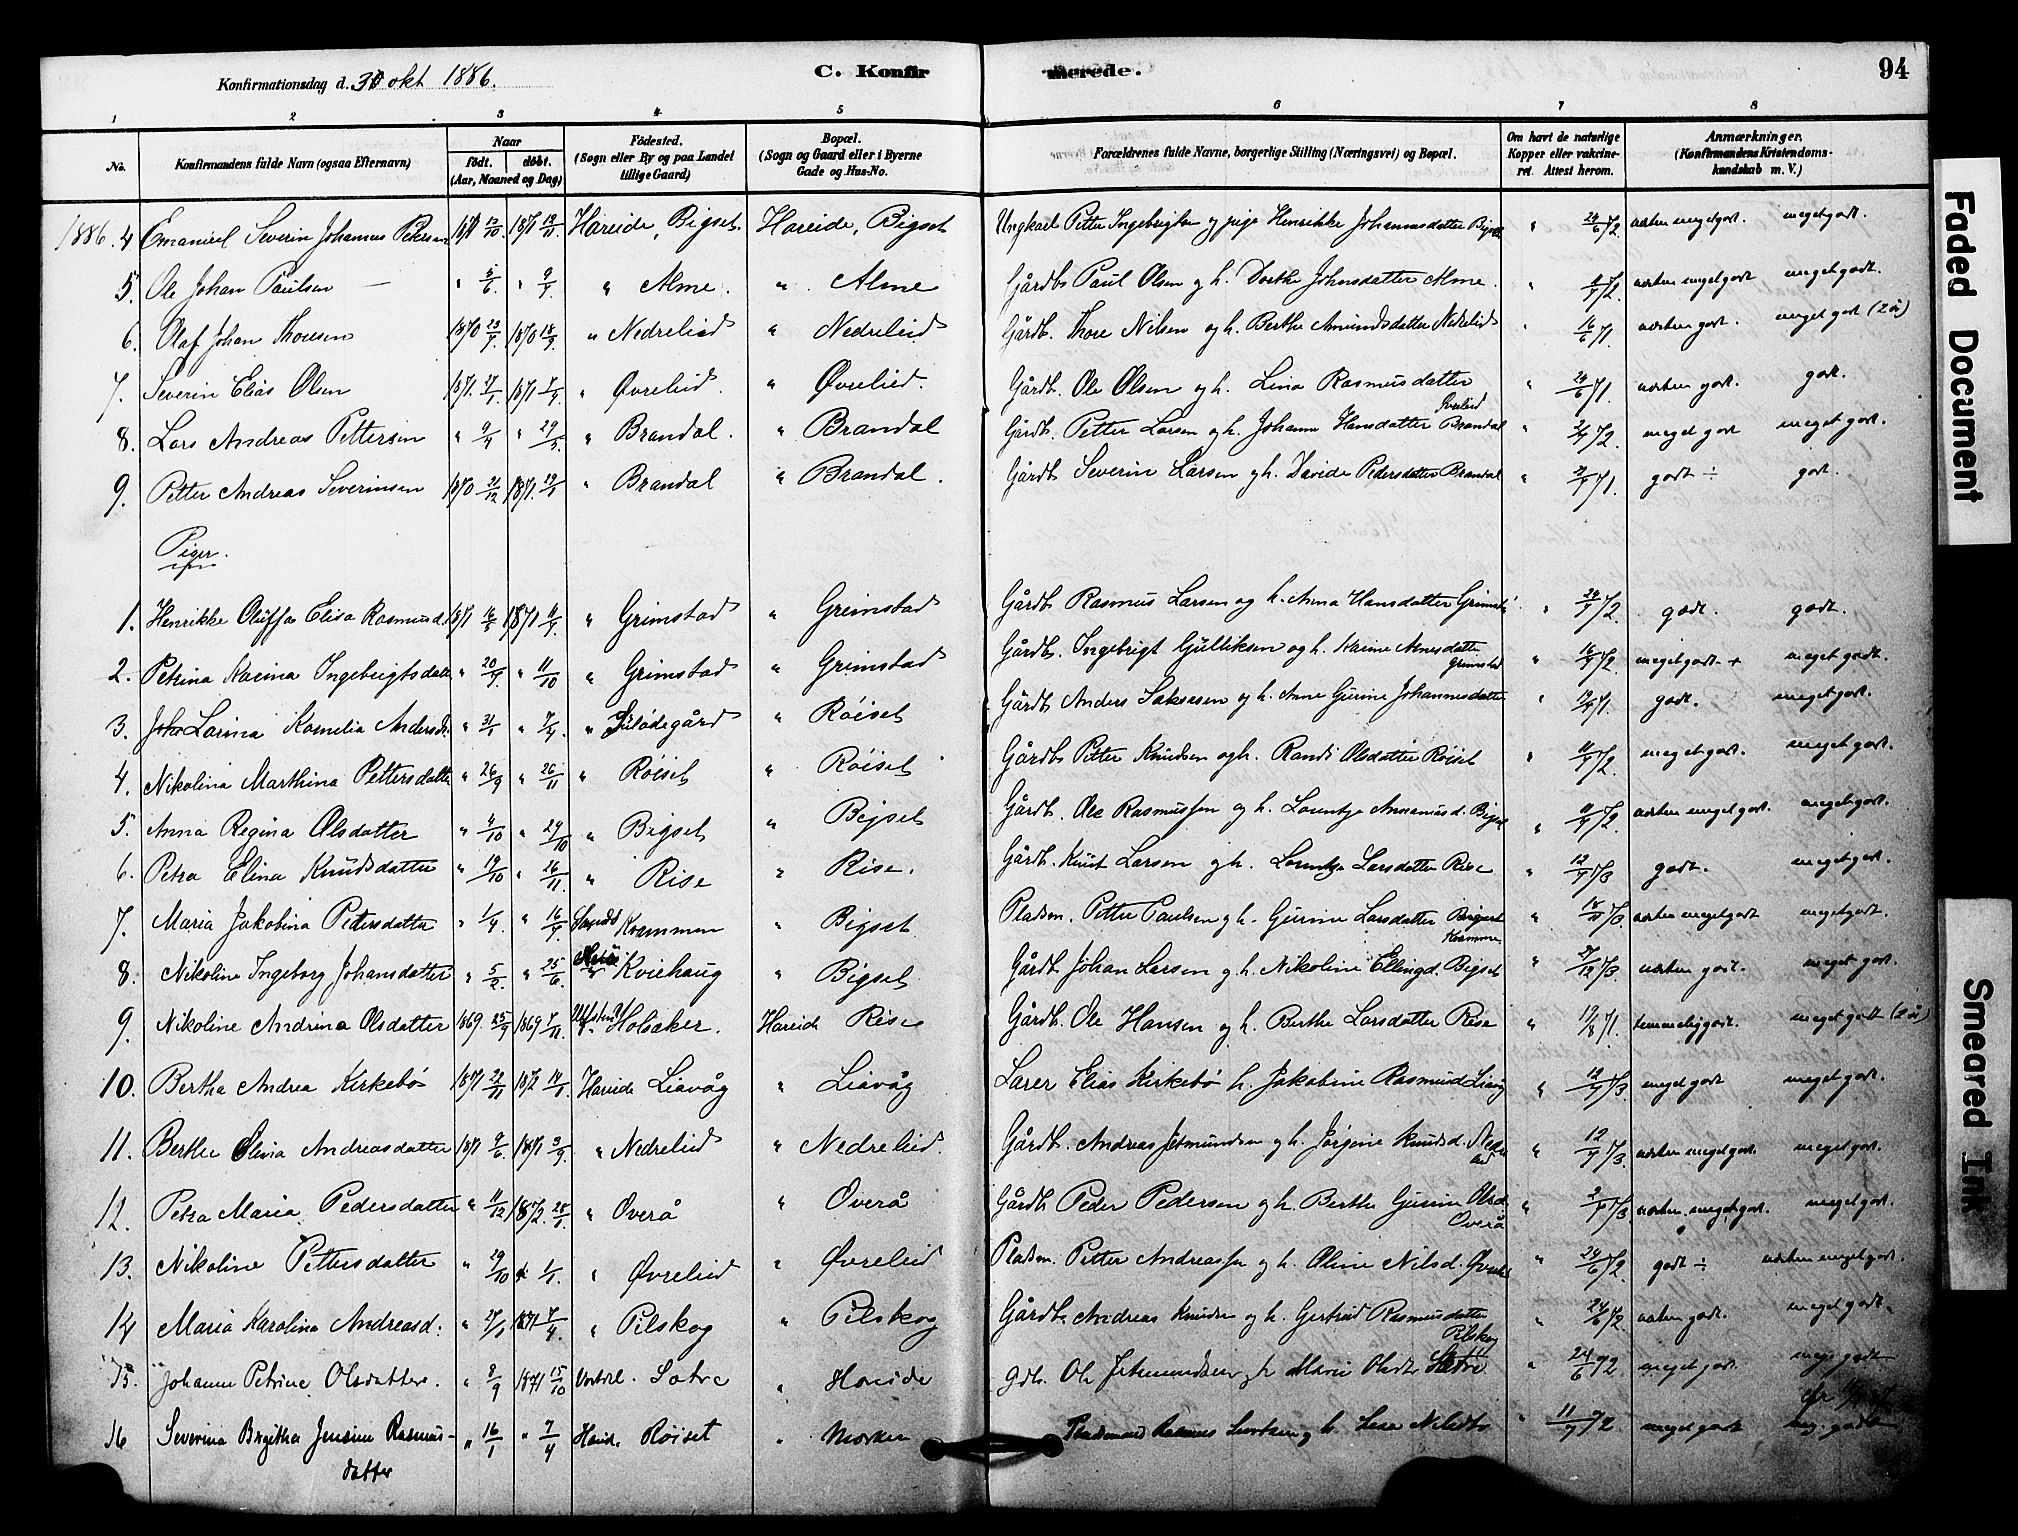 Konfirmationsdag d. 31 okt 1886.
C. Konfirmerede.
94
1 2 3 4 5 6 7 8
No.
Konfirmandens fulde Navn (ogsaa Efternavn)
Naar
födt. döbt.
(Aar, Maaned og Dag)
Födested.
(Sogn eller By og paa Landet
tillige Gaard)
Bopæl.
(Sogn og Gaard eller i Byerne
Gade og Hus-No.
Forældrenes fulde Navne, borgerlige Stilling (Næringsvei) og Bopæl.
Om havt de naturlige
Kopper eller vakcine-
ret. Attest herom.
Anmærkninger.
(Konfirmandens Kristendoms-
kundskab m. V.)
1886. 4 Emanuel Severin Johannes Petersen 1871 13/10 1871 19/11 Hareide, Bigset. Hareide, Bigset Ungkarl Petter Ingebrigtsen og pige Henrikke Johannesdatter " 24/6 72 næsten megetgodt. megetgodt.
5. Ole Johan Paulsen " 5/6 " 9/7 " Alme. " Alme Gårdb. Paul Olsen og h. Dorthe Johnsdatter Alme. " næsten megetgodt megetgodt.
6. Olaf Johan Thoresen 1870 23/7 1870 18/9 " Nedreleid " Nedreleid Gårdb. Thore Nilsen og h. Berthe Amundsdatter Nedreleid " 16/6 71. næsten godt. meget godt (2 år)
7. Severin Elias Olsen 1871. 1871 " Øvreleid. " Øvreleid. Gårdb. Ole Olsen og h. Lina Rasmusdatter Øvreleid " 24/6 71. næsten godt. godt.
8. Lars Andreas Pettersen " 9/4 " 29/5 " Brandal. " Brandal Gårdb. Petter Larsen og h. Johanne Hansdatter Brandal " 72. meget godt meget godt.
9. Petter Andreas Severinsen 1870 31/12 1871. 29/1 " Brandal " Brandal. Gårdb. Severin Larsen og h. Davide Pedersdatter Brandal " 71. godt ÷ godt.
Piger.
1. Henrikke Oluffa Elisa Rasmusd. 1871 16/5 1871 " Grimstad " Grimstad Gårdb. Rasmus Larsen og h. Anna Hansdatter " 72. godt. godt.
2. Petrina Karina Ingebrigtsdatter " 20/9 " 11/10 " Grimstad " Grimstad Gårdb. Ingebrigt Gulliksen og h. Karine Arnesdatter Grimstad " 16/9 72 megetgodt + meget godt.
3. Larina Kornelia Andersd. " 31/1 " " " Röiset Gårdb. Anders Saksesen og h. Anne Gurine Johannesdatter " 71. godt. megetgodt.
4. Nikolina Marthina Pettersdatter " 26/9 " 26/11 " Röiset " Röiset Gårdb. Petter Knudsen og h. Randi Olsdatter Röiset " 72. megetgodt. megetgodt.
5. Anna Regina Olsdatter " 4/10 " 29/10 " Bigset " Bigset Gårdb. Ole Rasmussen og h. Bigset " 72. næsten megetgodt. megetgodt.
6. Petra Elina Knudsdatter " 19/10 " 26/11. " Rise " Rise. Gårdb. Knut Larsen og h. Larsdatter Rise " 73 godt. megetgodt.
7. Maria Jakobina Pedersdatter " 1/4. " 16/7 Krammen " Bigset. Pladsm. Petter Paulsen og h. Gurine Larsdatter " 73. næsten megetgodt megetgodt.
8. Nikoline Ingeborg Johansdatter " 5/2. " 25/6. Kviehaug " Bigset. Gårdb. Johan Larsen og h. Nikoline Ellingd. Bigset " 73. næsten godt. meget godt.
9. Nikoline Andrina Olsdatter 1869. 25/9 1869 7/11. Ulfsten Hobaker. Hareide Rise Gårdb. Ole Hansen og h. Berthe Larsdatter Rise " 19/8 71. temmelig godt. meget godt (2 år)
10. Bertha Andrea Kirkebö 1871 29/11 1872 14/1. Hareide Liavåg " Liavåg Lærer Elias Kirkebö h. Jakobine Rasmusd Liavåg " 73. meget godt megetgodt.
11. Berthe Olivia Andreasdatter 1871 9/6. 1871 3/9. " Nedreleid " Nedreleid. Gårdb. Andreas Jetmundsen og h. Jörgine Knudsd. " 73. næsten megetgodt. megetgodt.
12. Petra Maria Pedersdatter " 11/12 1872. 28/1. " Överå " Överå Gårdb. Peder Pedersen og h. Berthe Gurine Olsd. Överå " 73. næsten megetgodt. megetgodt.
13. Nikoline Pettersdatter " 29/10 1/1. " Øvreleid " Øvreleid Pladsm. Petter Andreassen og h. Oline Nilsd. " 24/6 72. godt ÷ næsten megetgodt.
14 Maria Karolina Andreasd. " 1871 7/4. " Pilskog " Pilskog Gårdb. Andreas Knudsen og h. Gertrud Rasmusdatter Pilskog " 24/6 72. næsten godt. megetgodt.
15. Johanne Petrine Olsdatter. " 8/9 1871 15/10 Sætre " Hareide Gdb. Ole Jetmundsen og h. Marie Olsdtr. Sætre " 24/6 72 meget godt. meget godt
16 Severina Birgitha Jensine Rasmus-
datter " 16/1 " 7/4 Hareide Röiset " Pladsmand Rasmus og h. Nilsdtr " 11/9 72. megetgodt meg. godt
Faded Document
Smeared Ink